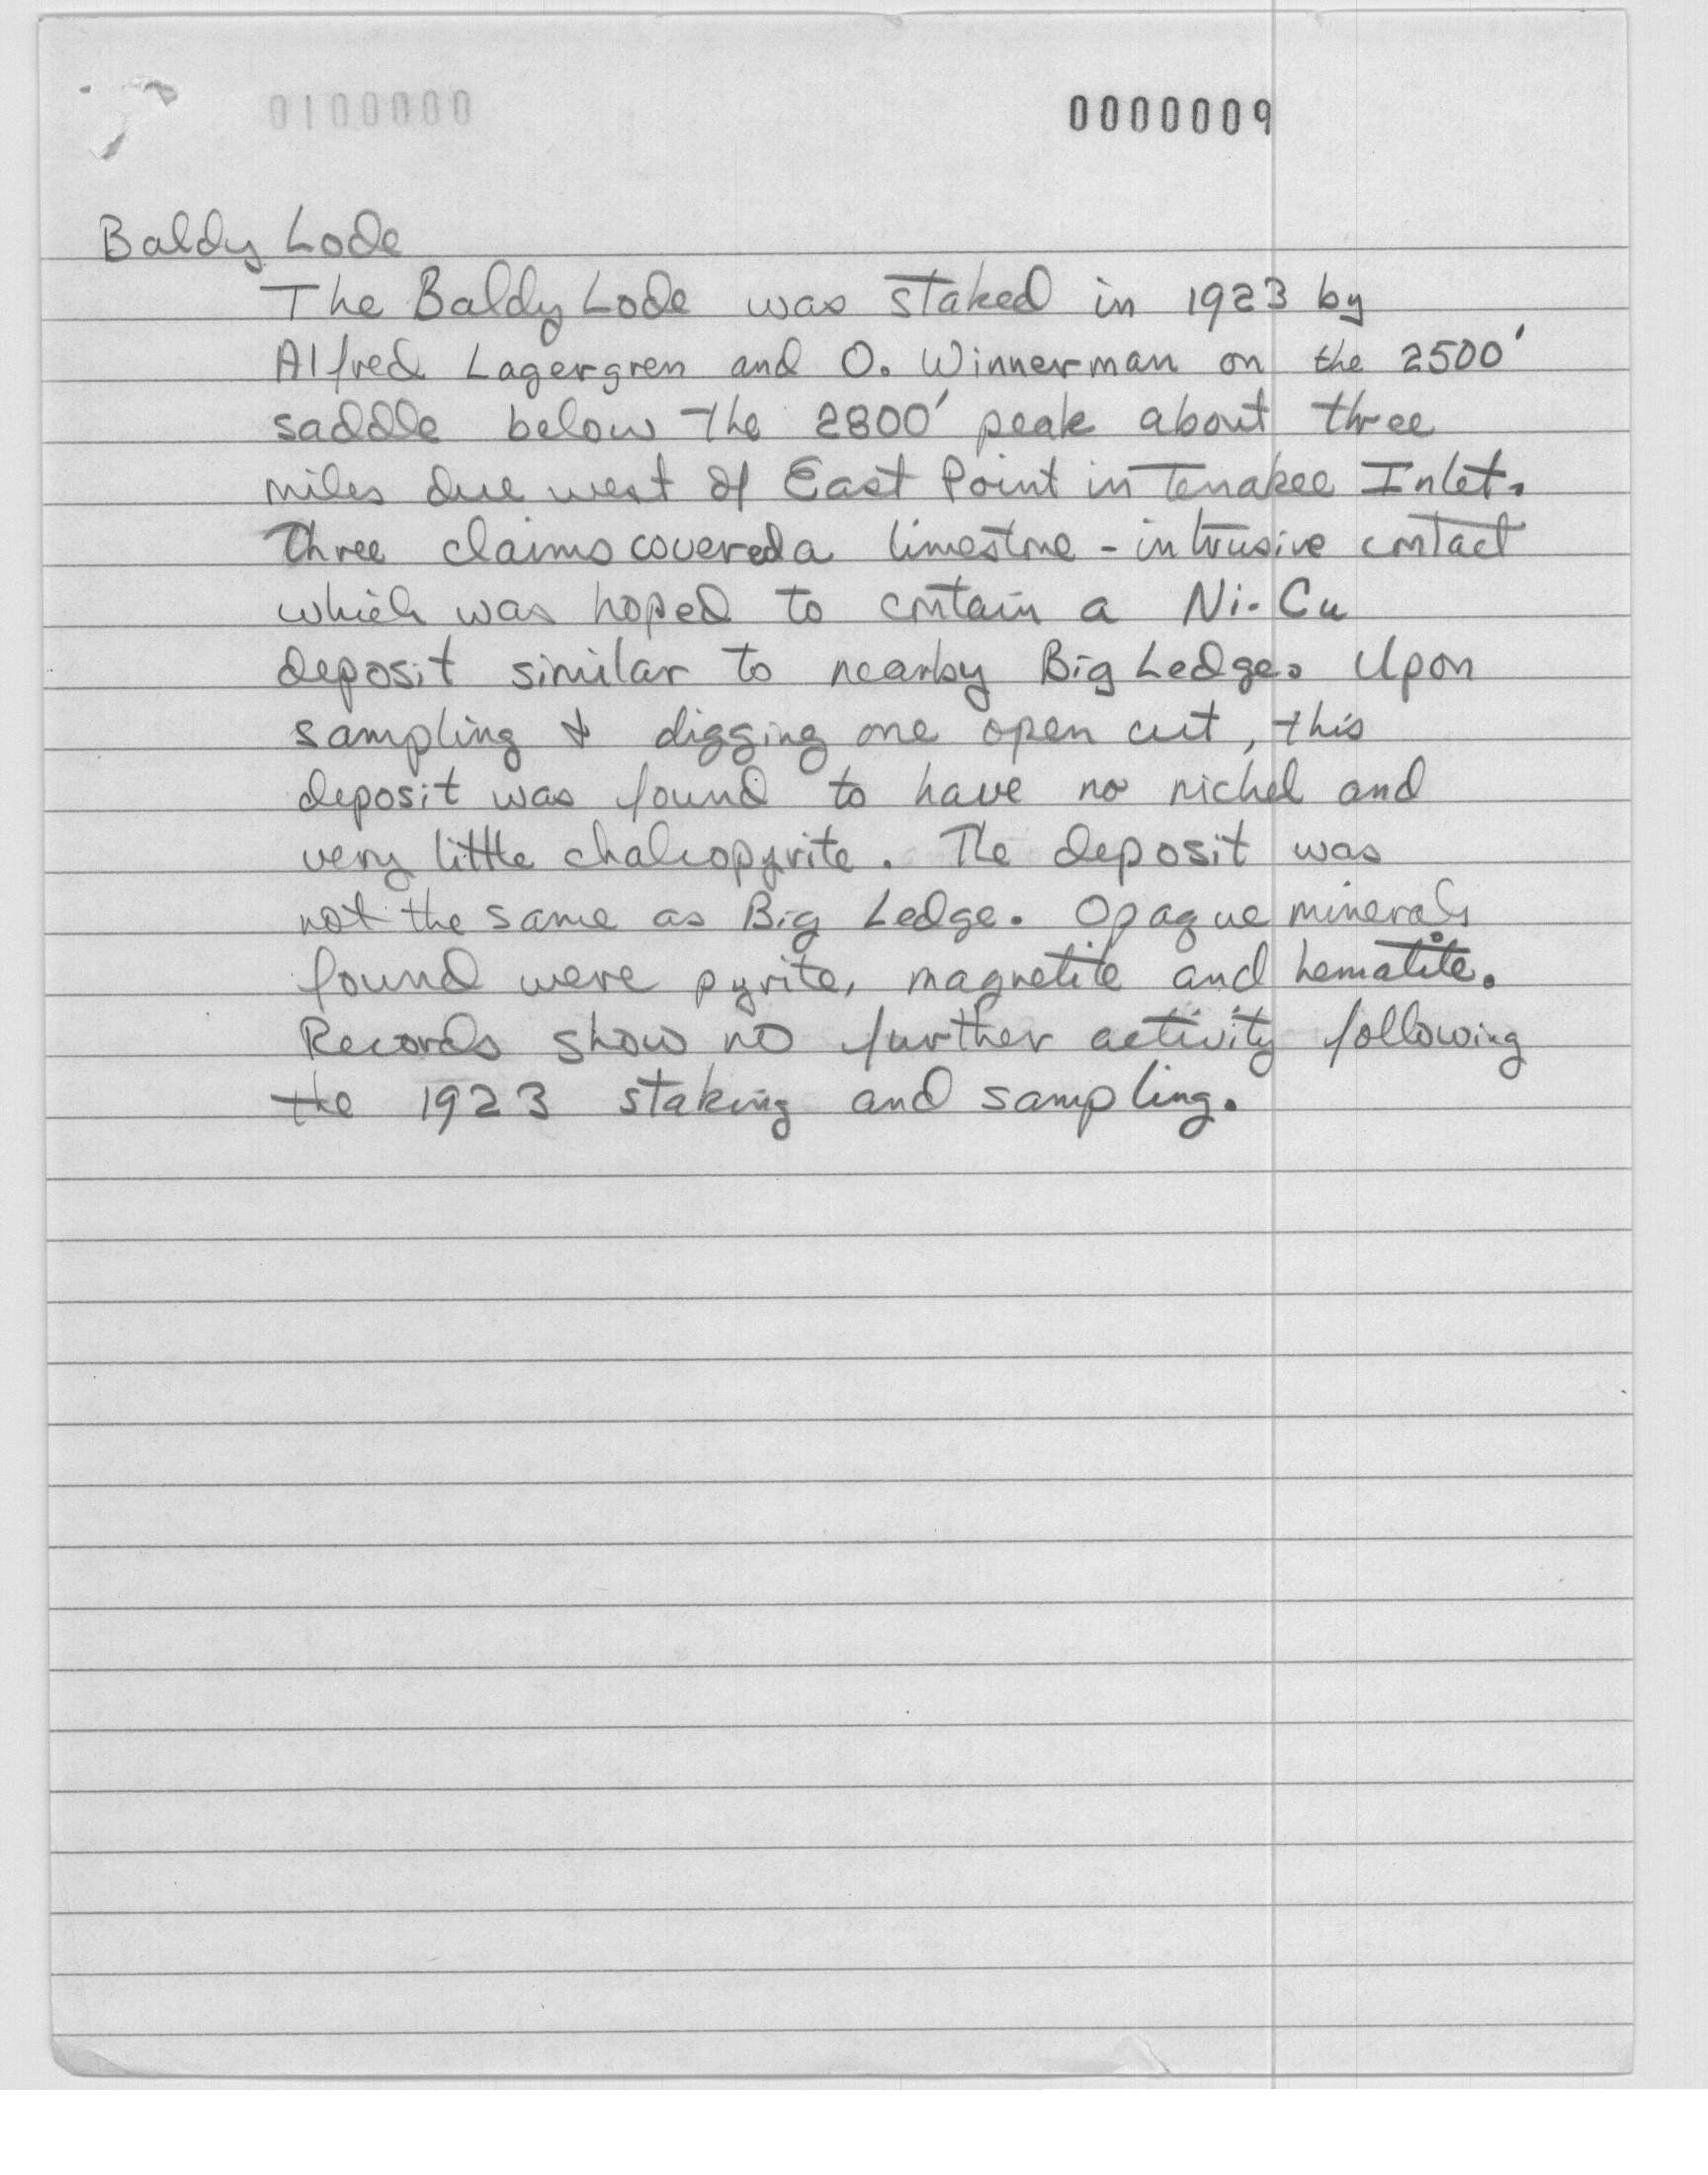 0100000 0000009
Baldy Lode
The Baldy Lode was staked in 1923 by
Alfred Lagergren and O. Winnerman on the 2500'
saddle below the 2800' peak about three
miles due west of East Point in Tenakee Inlet.
Three claims covered a limestone - intrusive contact
which was hoped to contain a Ni-Cu
deposit similar to nearby Big Ledge. Upon
sampling & digging one open cut, this
deposit was found to have no nickel and
very little chalcopyrite. The deposit was
not the same as Big Ledge. Opaque minerals
found were pyrite, magnetite and hematite.
Records show no further activity following
the 1923 staking and sampling.